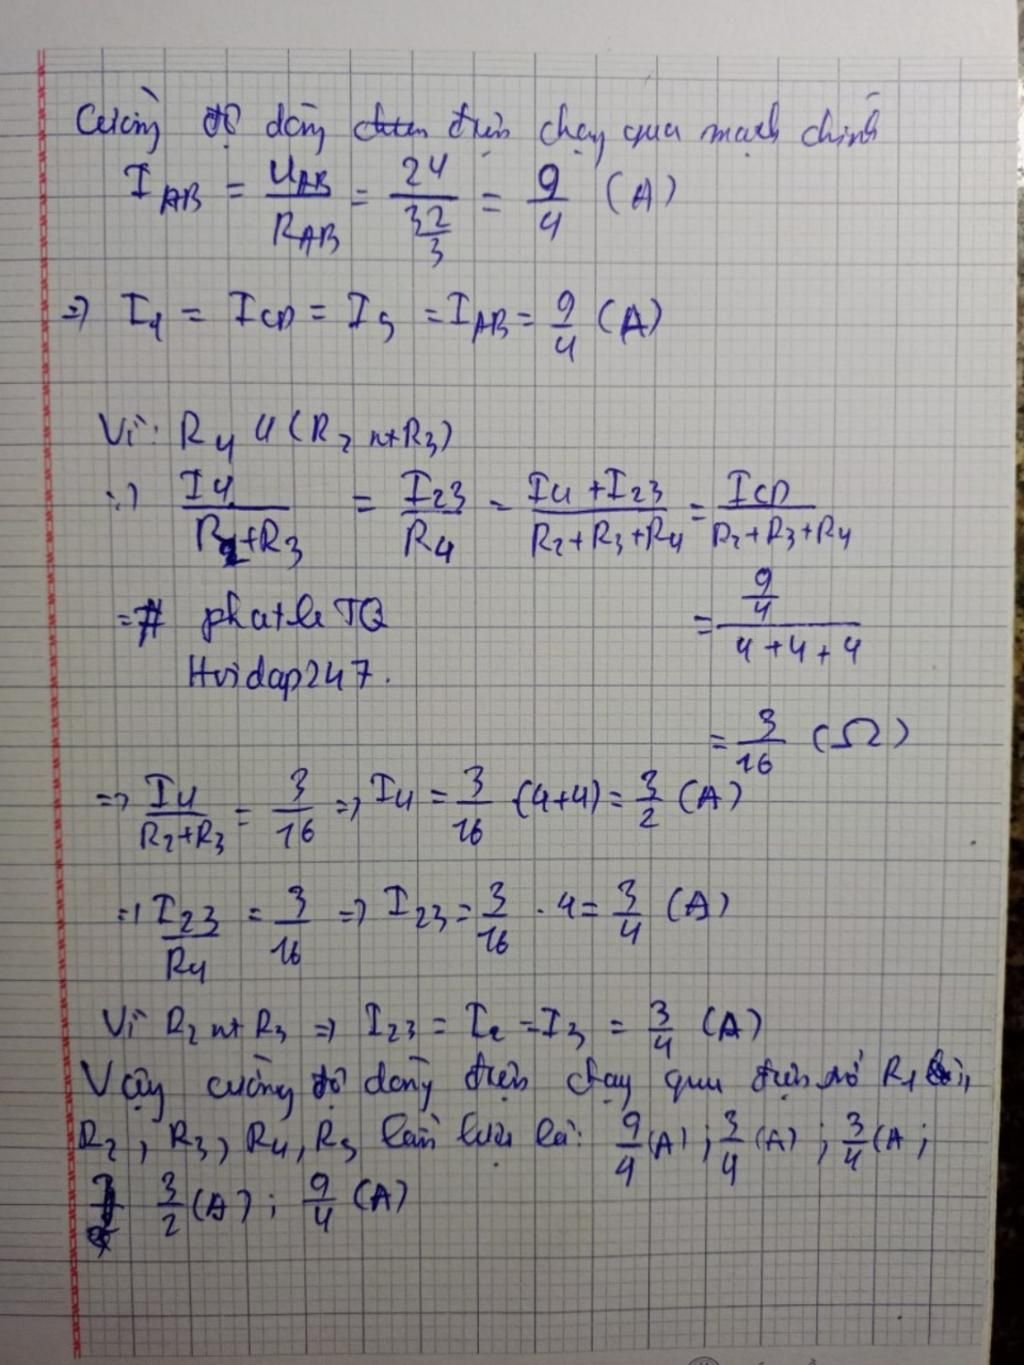 Cường độ dòng điện chạy qua mạch chính
I_AB = U_AB/R_AB = 24/(32/3) = 9/4 (A)
=> I1 = ICD = I5 = IAB = 9/4 (A)
Vì: R4 // (R2 nt R3)
=> I4/(R2+R3) = I23/R4 = (I4+I23)/(R2+R3+R4) = ICD/(R2+R3+R4)
= (9/4)/(4+4+4)
=# phatle TQ
Hoidap247.
= 3/16 (Ω)
=> I4/(R2+R3) = 3/16 => I4 = 3/16 (4+4) = 3/2 (A)
=> I23/R4 = 3/16 => I23 = 3/16 . 4 = 3/4 (A)
Vì R2 nt R3 => I23 = I2 = I3 = 3/4 (A)
Vậy cường độ dòng điện chạy qua điện trở R1,
R2, R3, R4, R5 lần lượt là: 9/4 (A); 3/4 (A); 3/4 (A;
3/2 (A); 9/4 (A)